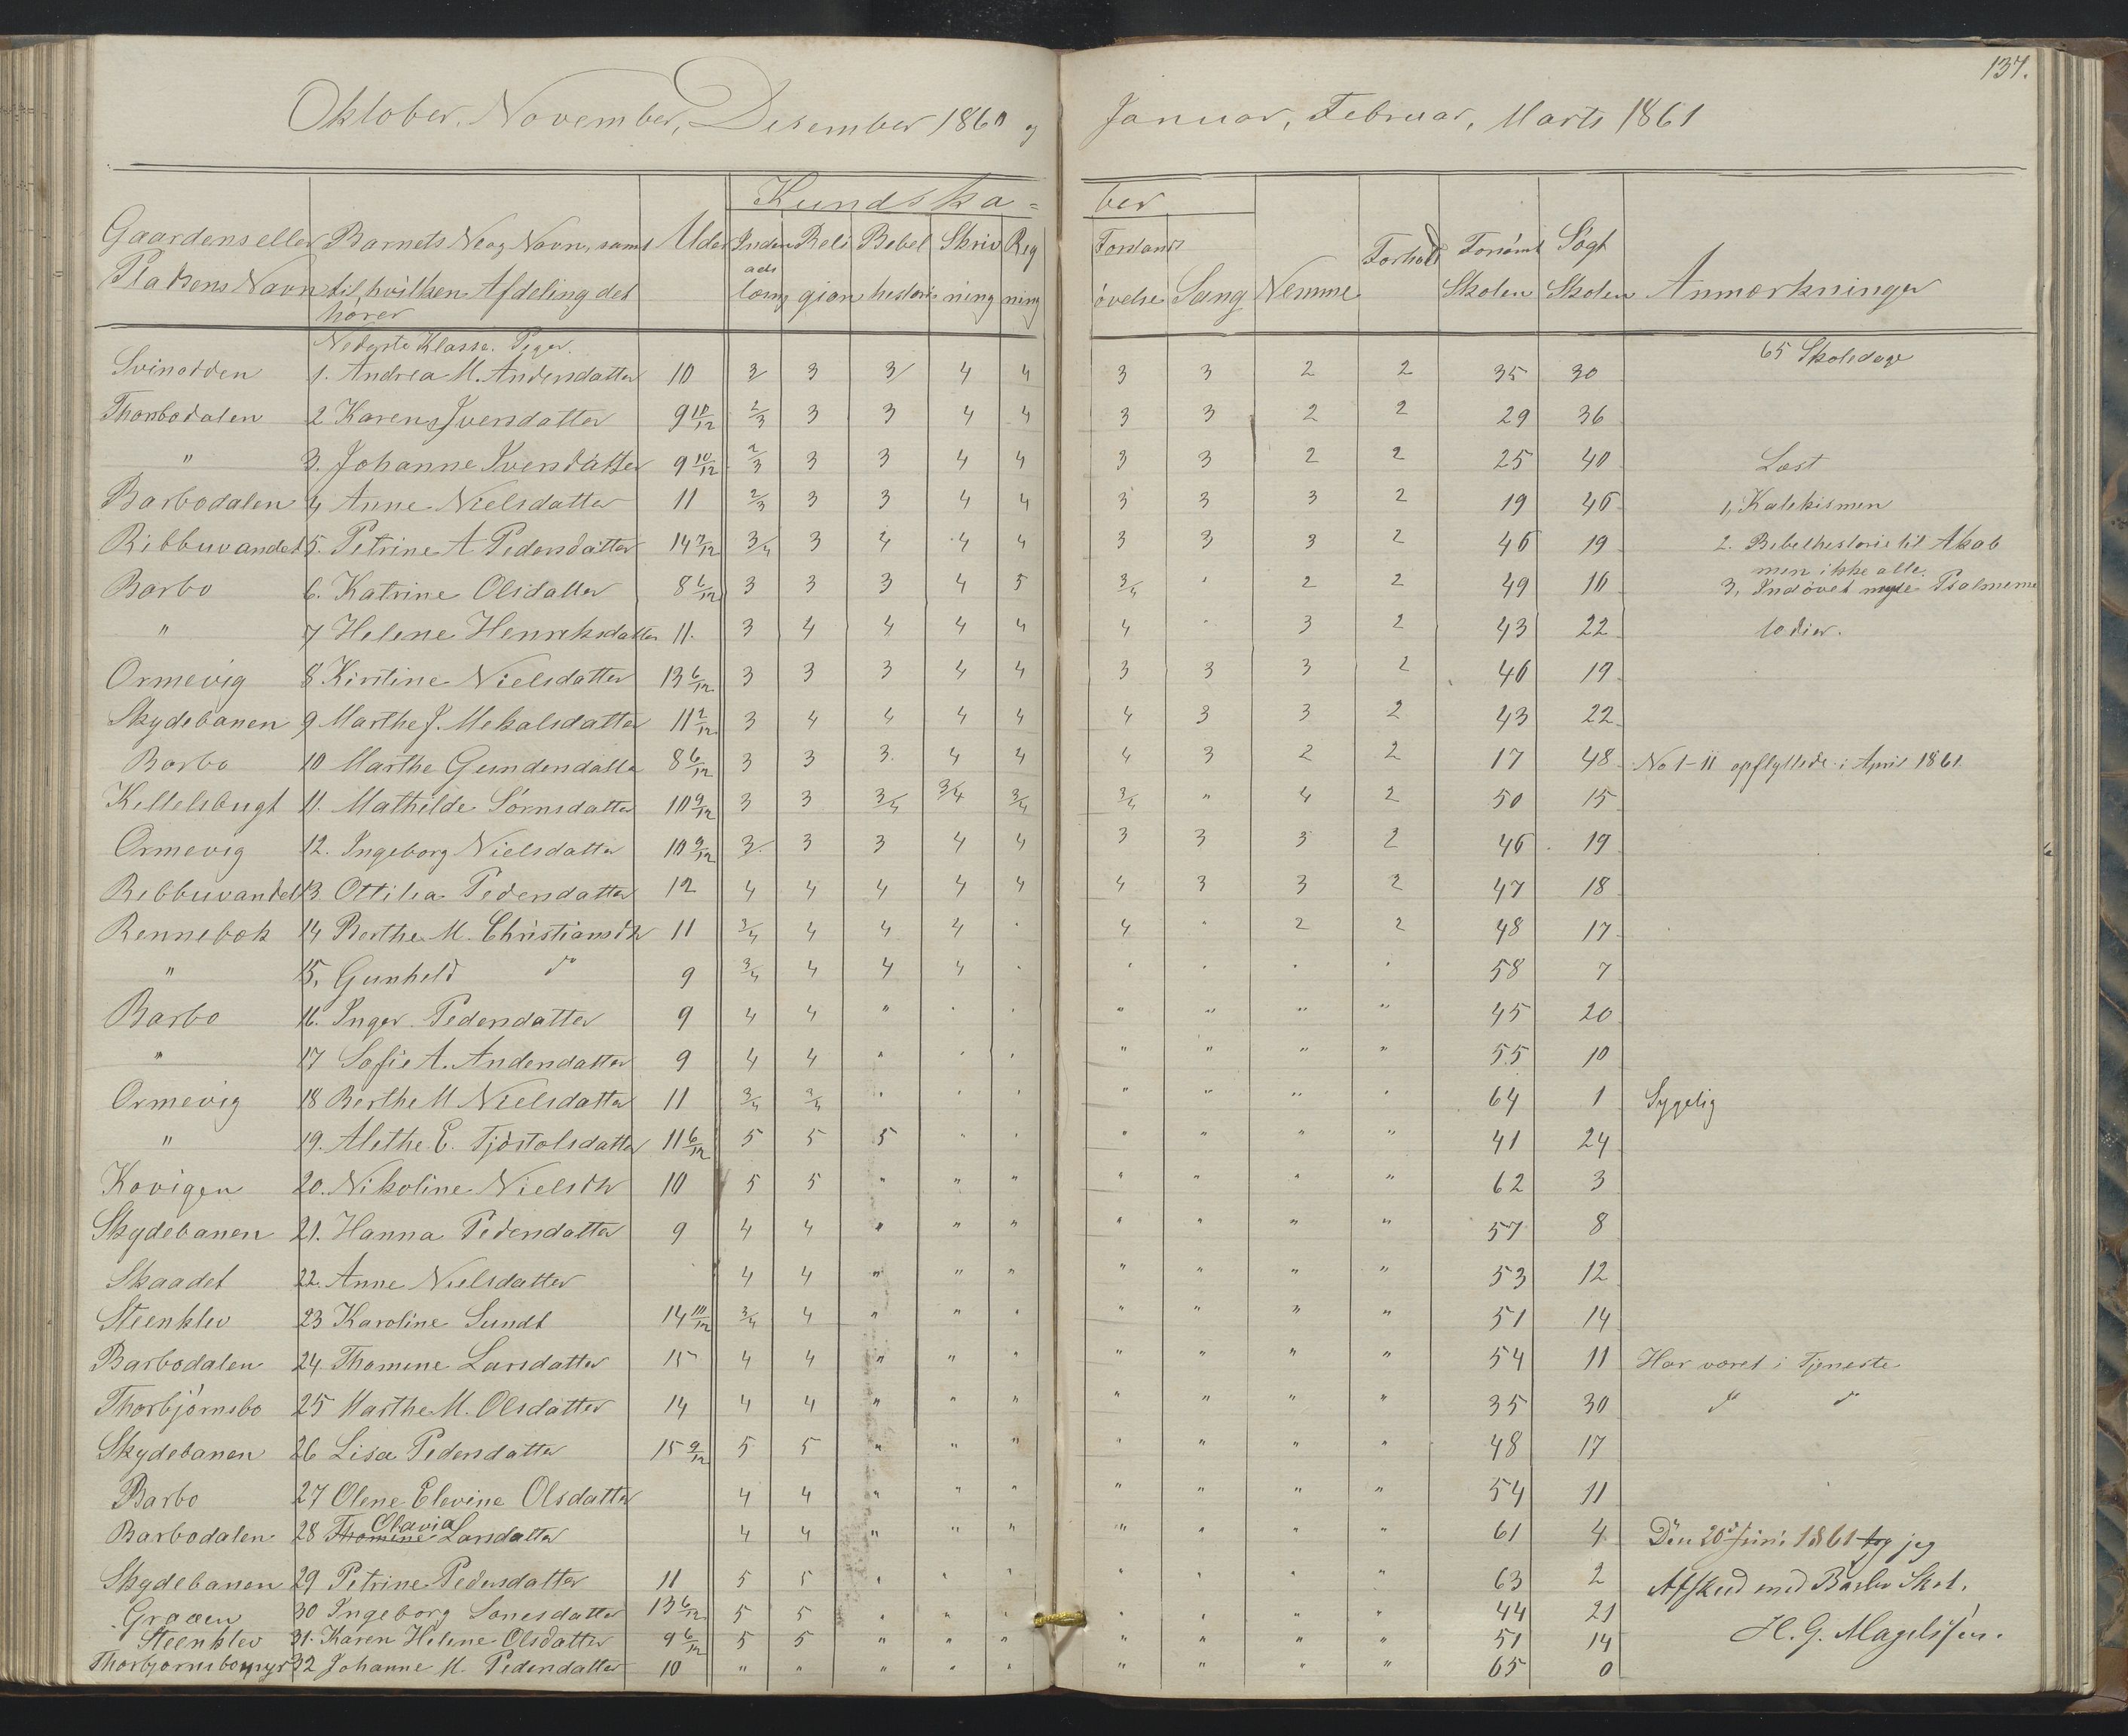 137.
Oktober, November, Desember 1860 og Januar, Februar, Marts 1861
Kundska= ber
Gaardens eller Barnets No og Navn, samt Alder Inden Reli Bibel Skriv Reg Forstands Forhold Forsømt Søgt
Pladsens Navn til hvilken Afdeling det ads læsng gion historie ning ning øvelse Sang Nemme Skolen Skolen Anmærkninger
hører
Nederste Klasse. Piger. 65 Skoledage
Svinodden 1. Andrea M. Andersdatter 10 3 3 3 4 4 3 3 2 2 35 30
Thorbodalen 2 Karen Iversdatter 9 10/12 2/3 3 3 4 4 3 3 2 2 29 36
" 3. Johanne Iversdatter 9 10/12 2/3 3 3 4 4 3 3 2 2 25 40 Læst
Barbodalen 4 Anne Nielsdatter 11 2/3 3 3 4 4 3 3 3 2 19 46 1, Katekismen
Ribbuvandet 5. Petrine A Pedersdatter 14 7/12 3/4 3 4 4 4 3 3 3 2 46 19 2. Bibelhestorie til Akab
men ikke alle.
Barbo 6. Katrine Olsdatter 8 6/12 3 3 3 4 5 3/4 " 2 2 49 16 3, Indøvet nogle Psalmeme
" 7 Helene Henriksdatter 11. 3 4 4 4 4 4 " 3 2 43 22 lodier.
Ormevig 8 Kirstine Nielsdatter 13 6/12 3 3 3 4 4 3 3 3 2 46 19
Skydebanen 9 Marthe J. Mekalsdatter 11 2/12 3 4 4 4 4 4 3 3 2 43 22
Barbo 10 Marthe Gundersdatter 8 6/12 3 3 3 4 4 4 3 2 2 17 48 No 1-11 opflyttede i April 1861.
Kittelsbugt 11. Mathilde Sørnsdatter 10 9/12 3 3 3/4 3/4 3/4 3/4 " 4 2 50 15
Ormevig 12. Ingeborg Nielsdatter 10 9/12 3 3 3 4 4 3 3 3 2 46 19
Ribbuvandet 13 Ottilia Pedersdatter 12 4 4 4 4 4 4 3 3 2 47 18
Rennebæk 14 Berthe M. Christiansdtr 11 3/4 4 4 4 " 4 " 2 2 48 17
" 15, Gunheld do 9 3/4 4 4 4 " " " " " 58 7
Barbo 16. Inger Pedersdatter 9 4 4 " " " " " " " 45 20
" 17 Sofie A. Andersdatter 9 4 4 " " " " " " " 55 10
Ormevig 18 Berthe M Nielsdatter 11 3/4 3/4 " " " " " " " 64 1 Sygelig
" 19. Alethe E. Tjøstolsdatter 11 6/12 5 5 5 " " " " " " 41 24
Kovigen 20. Nikoline Nielsdtr 10 5 5 " " " " " " " 62 3
Skydebanen 21. Hanna Pedersdatter 9 4 4 " " " " " " " 57 8
Skaadet 22. Anne Nielsdatter 4 4 " " " " " " " 53 12
Steenklev 23 Karoline Sundt 14 10/12 3/4 4 " " " " " " " 51 14
Barbodalen 24 Thomine Larsdatter 15 4 4 " " " " " " " 54 11 Har været i Tjeneste
Thorbjørnsbo 25 Marthe M. Olsdatter 14 4 4 " " " " " " " 35 30 do do
Skydebanen 26 Lisa Pedersdatter 15 9/12 5 5 " " " " " " " 48 17
Barbo 27 Olene Elevine Olsdatter 4 4 " " " " " " " 54 11
Barbodalen 28 Thomine Olavia Larsdatter 4 4 " " " " " " " 61 4 Den 20de Juni 1861 tog jeg
Skydebanen 29 Petrine Pedersdatter 11 5 5 " " " " " " " 63 2 Afsked med Barbo Skol.
Graaen 30 Ingeborg Sonesdatter 13 6/12 5 5 " " " " " " " 44 21
Steenklev 31. Karen Helene Olsdatter 9 6/12 5 5 " " " " " " " 51 14 H. G. Magelssen.
Thorbjørnsbomyr 32 Johanne M. Pedersdatter 10 " " " " " " " " " 65 0